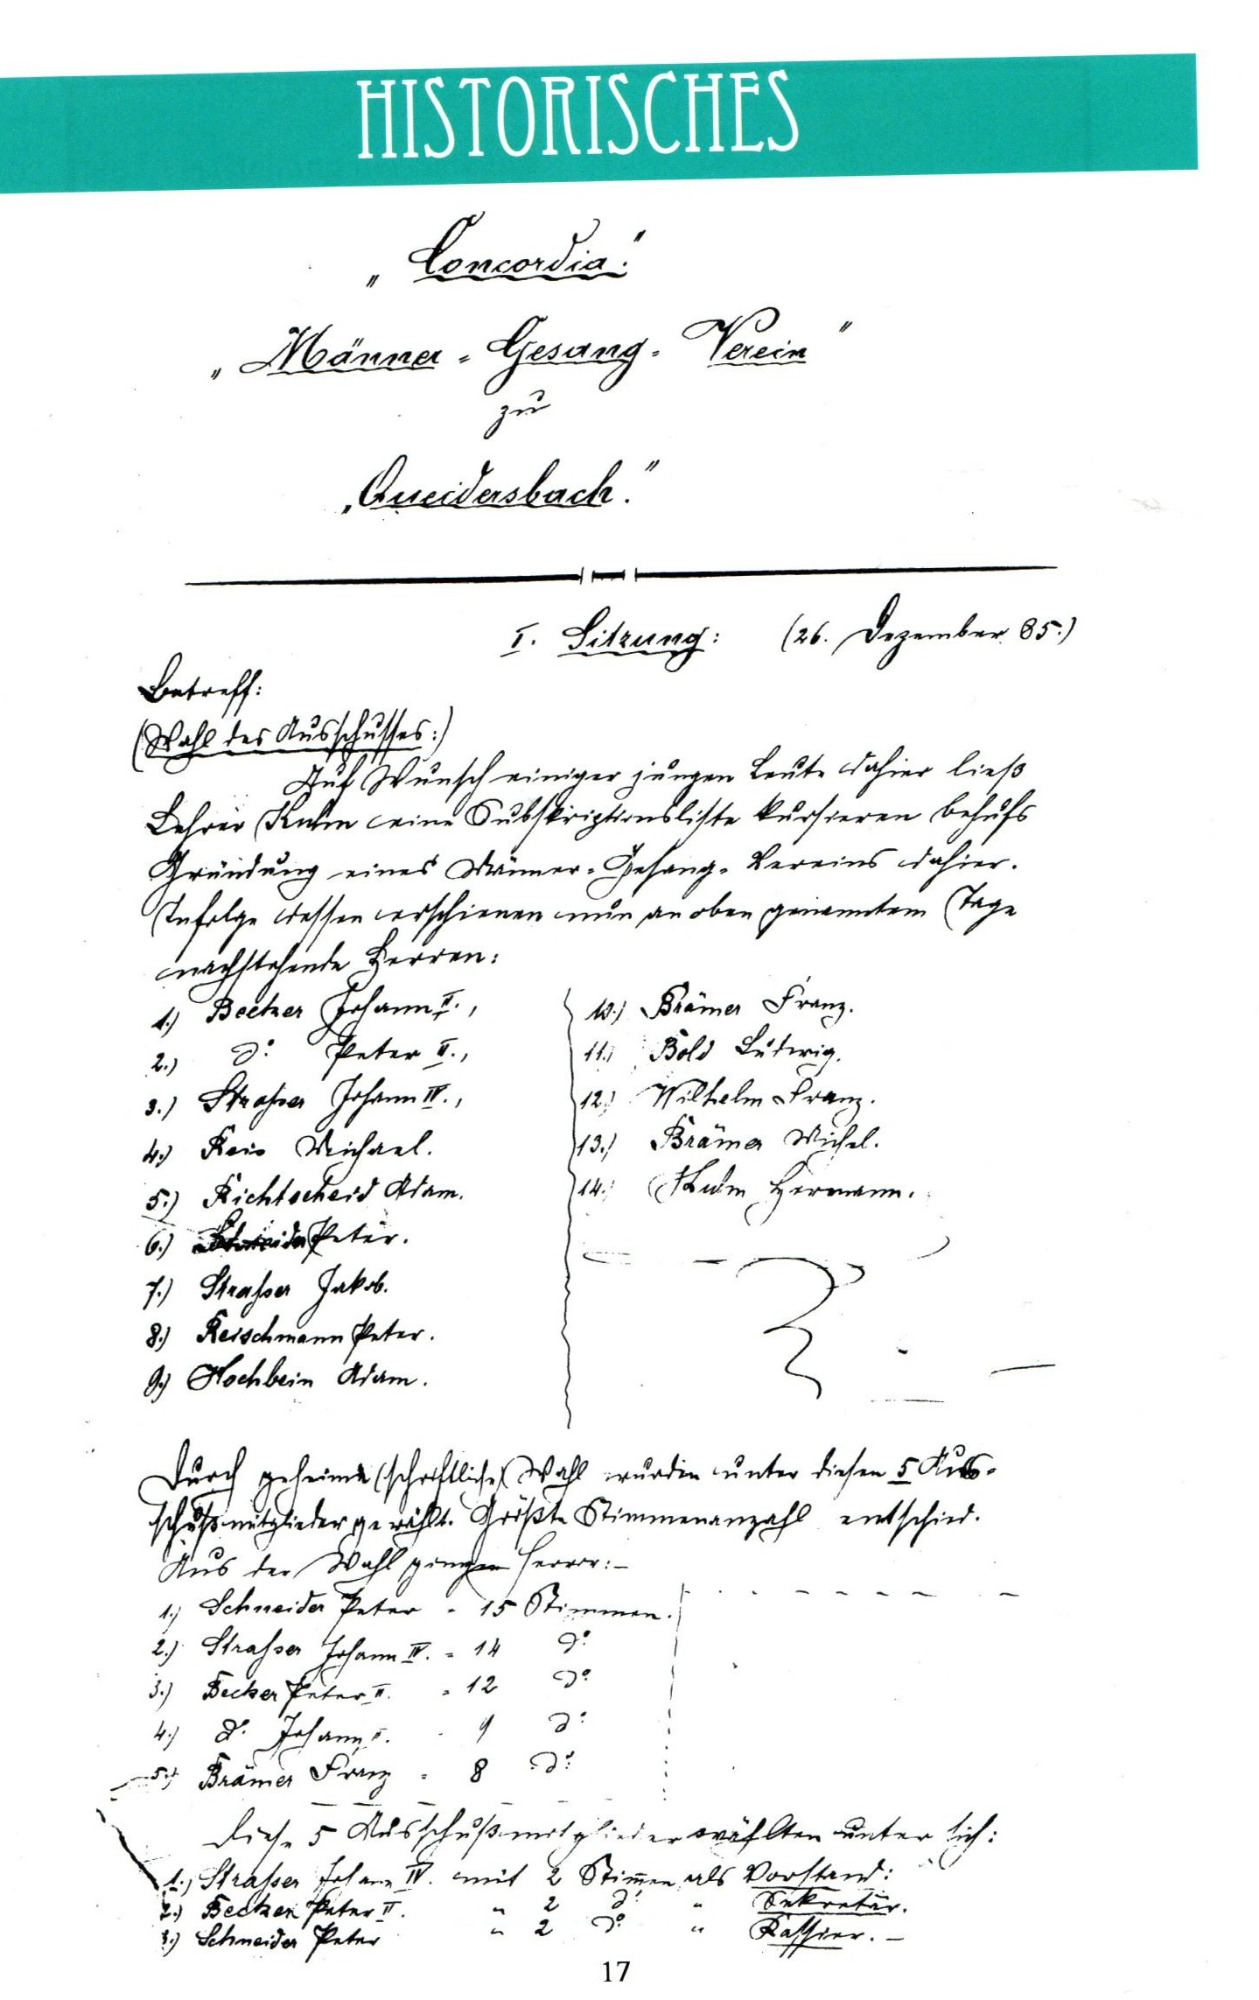 HISTORISCHES
„Concordia."
„Männer-Gesang-Verein"
zu
„Queidersbach."
I. Sitzung: (26. Dezember 85.)
Betreff:
(Wahl des Ausschusses:)
Auf Wunsch einiger jungen Leute dahier ließ
Lehrer eine Subskriptionsliste kursieren behufs
Gründung eines Männer-Gesang-Vereins dahier.
Infolge dessen erschienen nun an oben genanntem Tage
nachstehende Herren:
1.) Becker Johann II.,
2.) do. Peter II.,
3.) Strasser Johann IV.,
4.) Reis Michael.
5.) Richtscheid Adam.
6.) Schneider Peter.
7.) Strasser Jakob.
8.) Reischmann Peter.
9.) Hochbein Adam.
10.) Brämer Franz.
11.) Bold Ludwig.
12.) Wilhelm Franz.
13.) Brämer Michel.
14.) Hermann.
Durch geheime (schriftliche) Wahl wurden unter diesen 5 Aus-
schußmitglieder gewählt. Größte Stimmenanzahl entschied.
Aus der Wahl gingen hervor:–
1.) Schneider Peter - 15 Stimmen.
2.) Strasser Johann IV. - 14 do.
3.) Becker Peter II. - 12 do.
4.) do. Johann - 9 do.
5.) Brämer Franz - 8 do.
Diese 5 Ausschußmitglieder wählten unter sich:
1.) Strasser Johann IV. mit 2 Stimmen als Vorstand:
2.) Becker Peter II. " 2 do. " Sekretär.
3.) Schneider Peter " 2 do. " Kassier.–
17